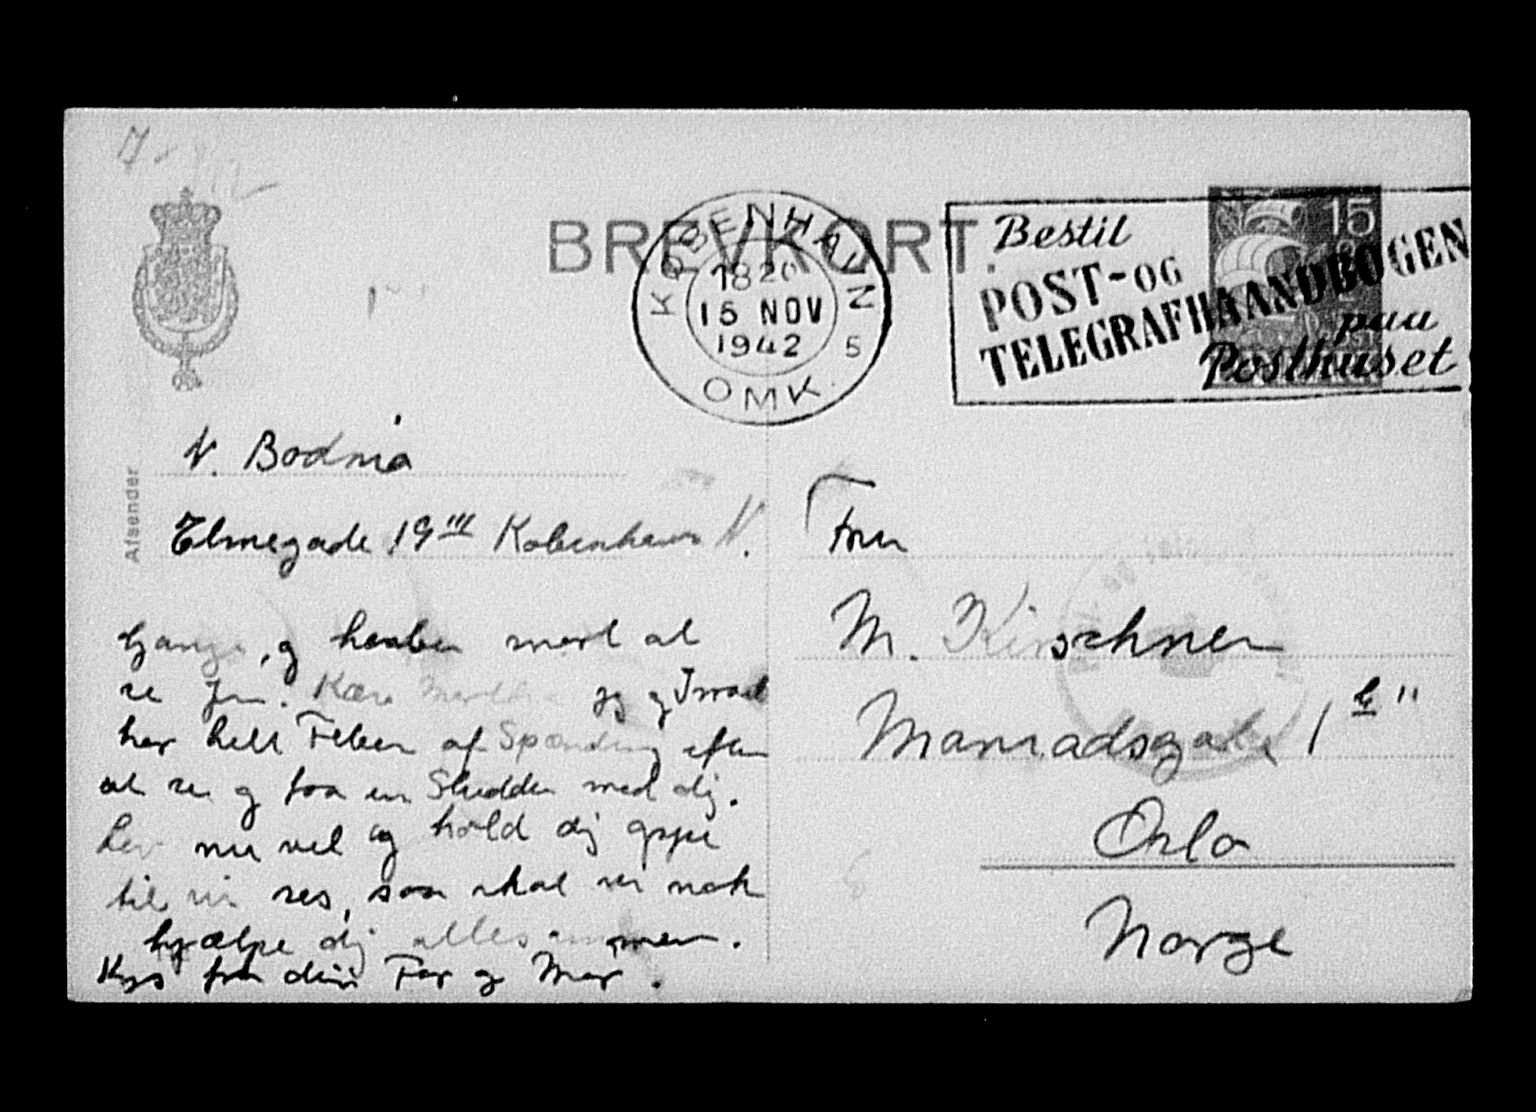 BREVKORT.
KØBENHAVN
1820
15 NOV
1942 5
OMK.
Bestil
POST- OG
TELEGRAFHAANDBOGEN
paa
Posthuset
15
Afsender
N. Bodnia
Elmegade 19 III København N.
Gange, og haaber snart at
se jer. Kære Martha jeg og Israel
har helt Feber af Spænding efter
at se og faa en Sludder med dig.
Lev nu vel og hold dig oppe
til vi ses, saa skal vi nok
hjælpe dig allesammen.
Kys fra din Far og Mor.
Fru
M. Kirschner
Marriadsgate 1
Oslo
Norge